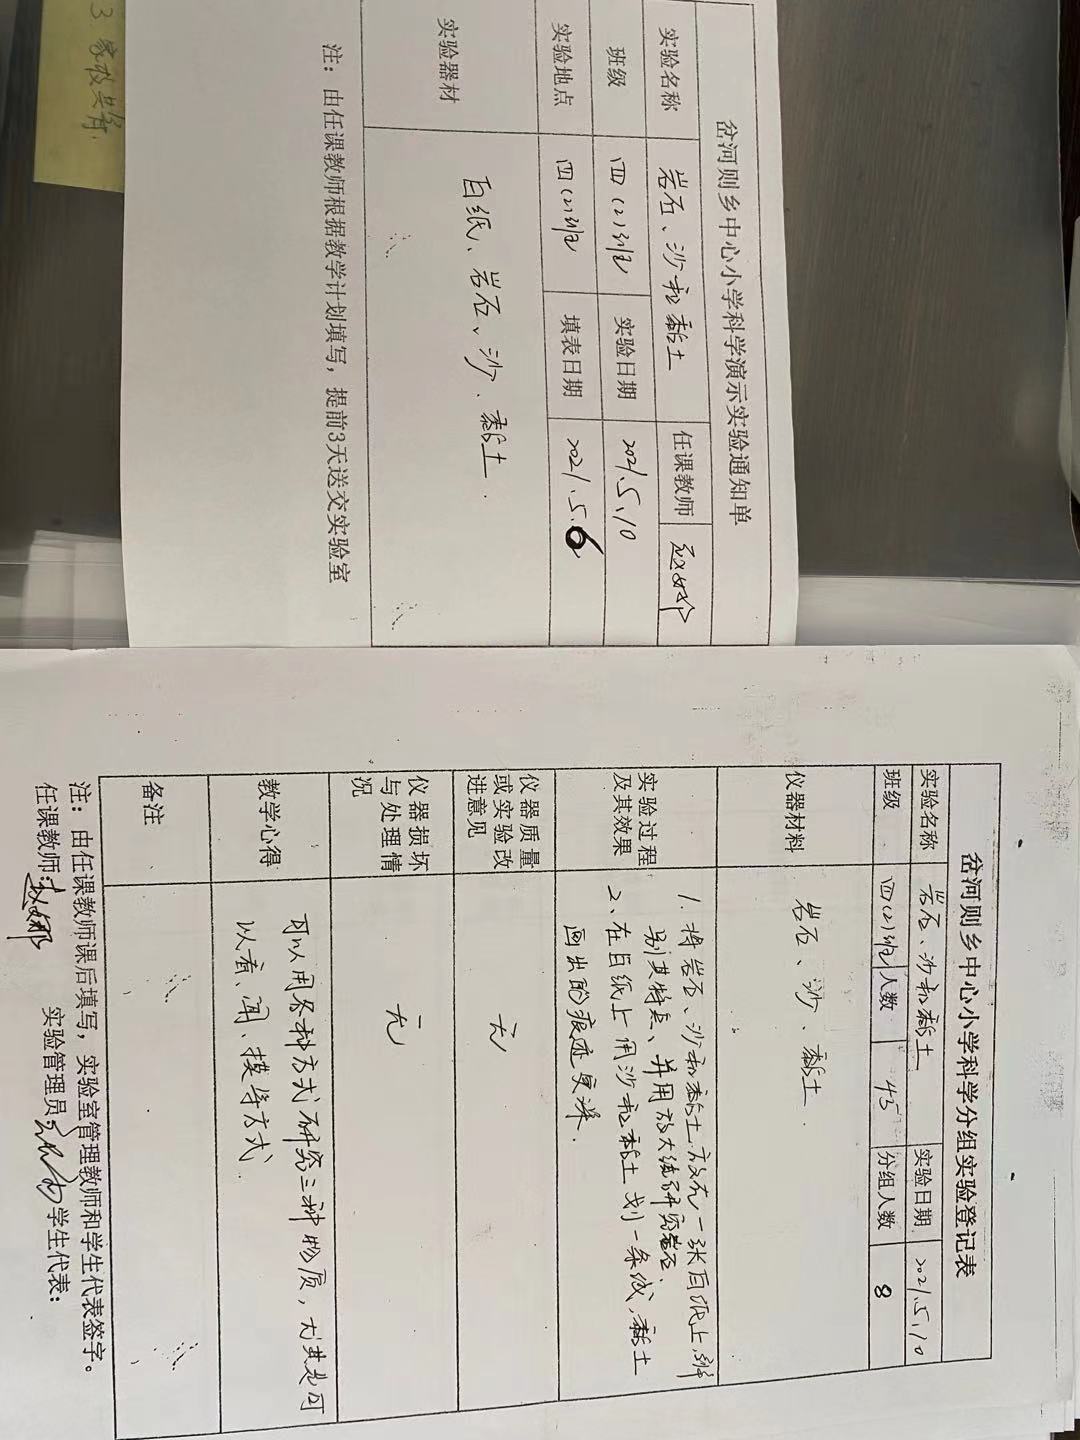 3 家校共育.
岔河则乡中心小学科学演示实验通知单
实验名称 岩石、沙和黏土 任课教师
班级 四(2)班 实验日期 2021.5.10
实验地点 四(2)班 填表日期 2021.5.6
实验器材 白纸、岩石、沙、黏土.
注：由任课教师根据教学计划填写，提前3天送交实验室
岔河则乡中心小学科学分组实验登记表
实验名称 岩石、沙和黏土 实验日期 2021.5.10
班级 四(2)班 人数 45 分组人数 8
仪器材料 岩石、沙、黏土.
实验过程
及其效果
1. 将岩石、沙和黏土放在一张白纸上,辨
别其特点、并用放大镜研究岩石.
2、在白纸上用沙和黏土划一条线,黏土
画出的痕迹更深.
仪器质量
或实验改
进意见
无
仪器损坏
与处理情
况
无
教学心得
可以用各种方式研究三种物质，尤其是可
以看、闻、摸等方式.
备注
注：由任课教师课后填写，实验室管理教师和学生代表签字。
任课教师: 赵娜 实验管理员: 学生代表：